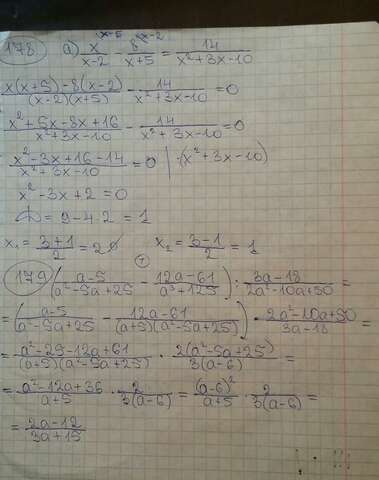 x+5 x-2
178 а) x/(x-2) - 8/(x+5) = 14/(x²+3x-10)
(x(x+5)-8(x-2))/((x-2)(x+5)) - 14/(x²+3x-10) = 0
(x²+5x-8x+16)/(x²+3x-10) - 14/(x²+3x-10) = 0
(x²-3x+16-14)/(x²+3x-10) = 0 | ·(x²+3x-10)
x²-3x+2=0
D = 9-4·2 = 1
x₁ = (3+1)/2 = 2 x₂ = (3-1)/2 = 1
179 ((a-5)/(a²-5a+25) - (12a-61)/(a³+125)) : (3a-18)/(2a²-10a+50) =
= ((a-5)/(a²-5a+25) - (12a-61)/((a+5)(a²-5a+25))) · (2a²-10a+50)/(3a-18) =
= (a²-25-12a+61)/((a+5)(a²-5a+25)) · 2(a²-5a+25)/(3(a-6)) =
= (a²-12a+36)/(a+5) · 2/(3(a-6)) = (a-6)²/(a+5) · 2/(3(a-6)) =
= (2a-12)/(3a+15)